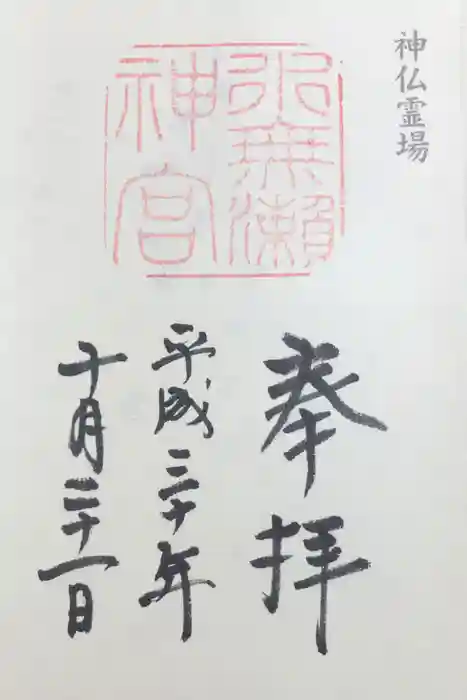 神仏霊場
水無瀬
神宮
奉拝
平成三十年
十月二十一日